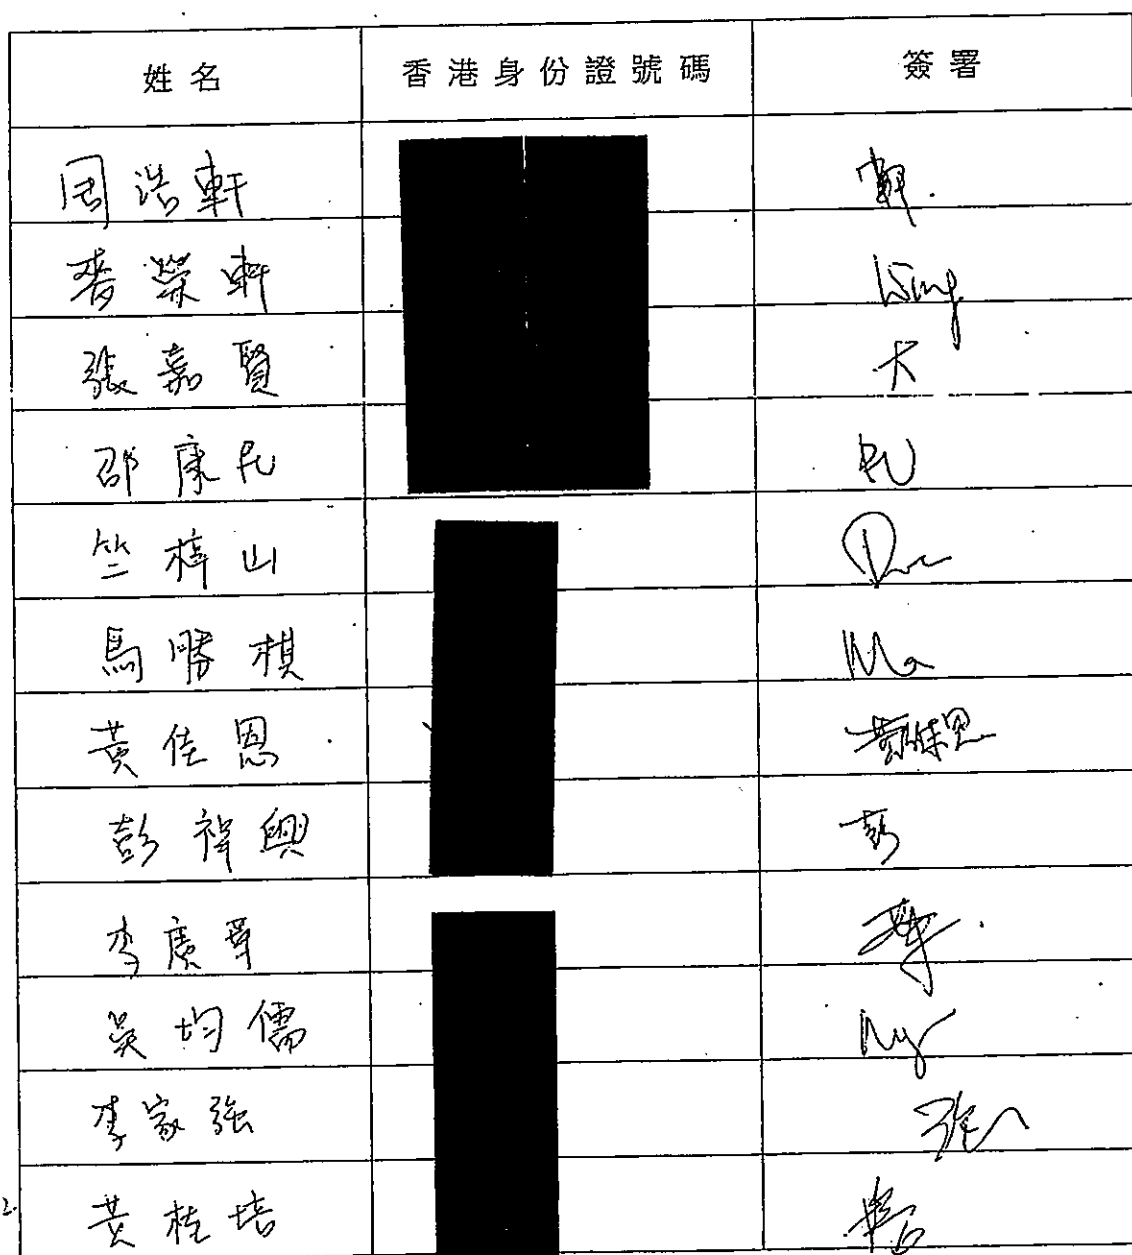 姓名 香港身份證號碼 簽署
周浩軒
麥榮軒 Wing
張嘉賢
邵康民
竺梓山
馬勝棋 Ma
黃佳恩 黃佳恩
彭禕興 彭
李廣華
吳均儒 Ng
李家強
黃桂培